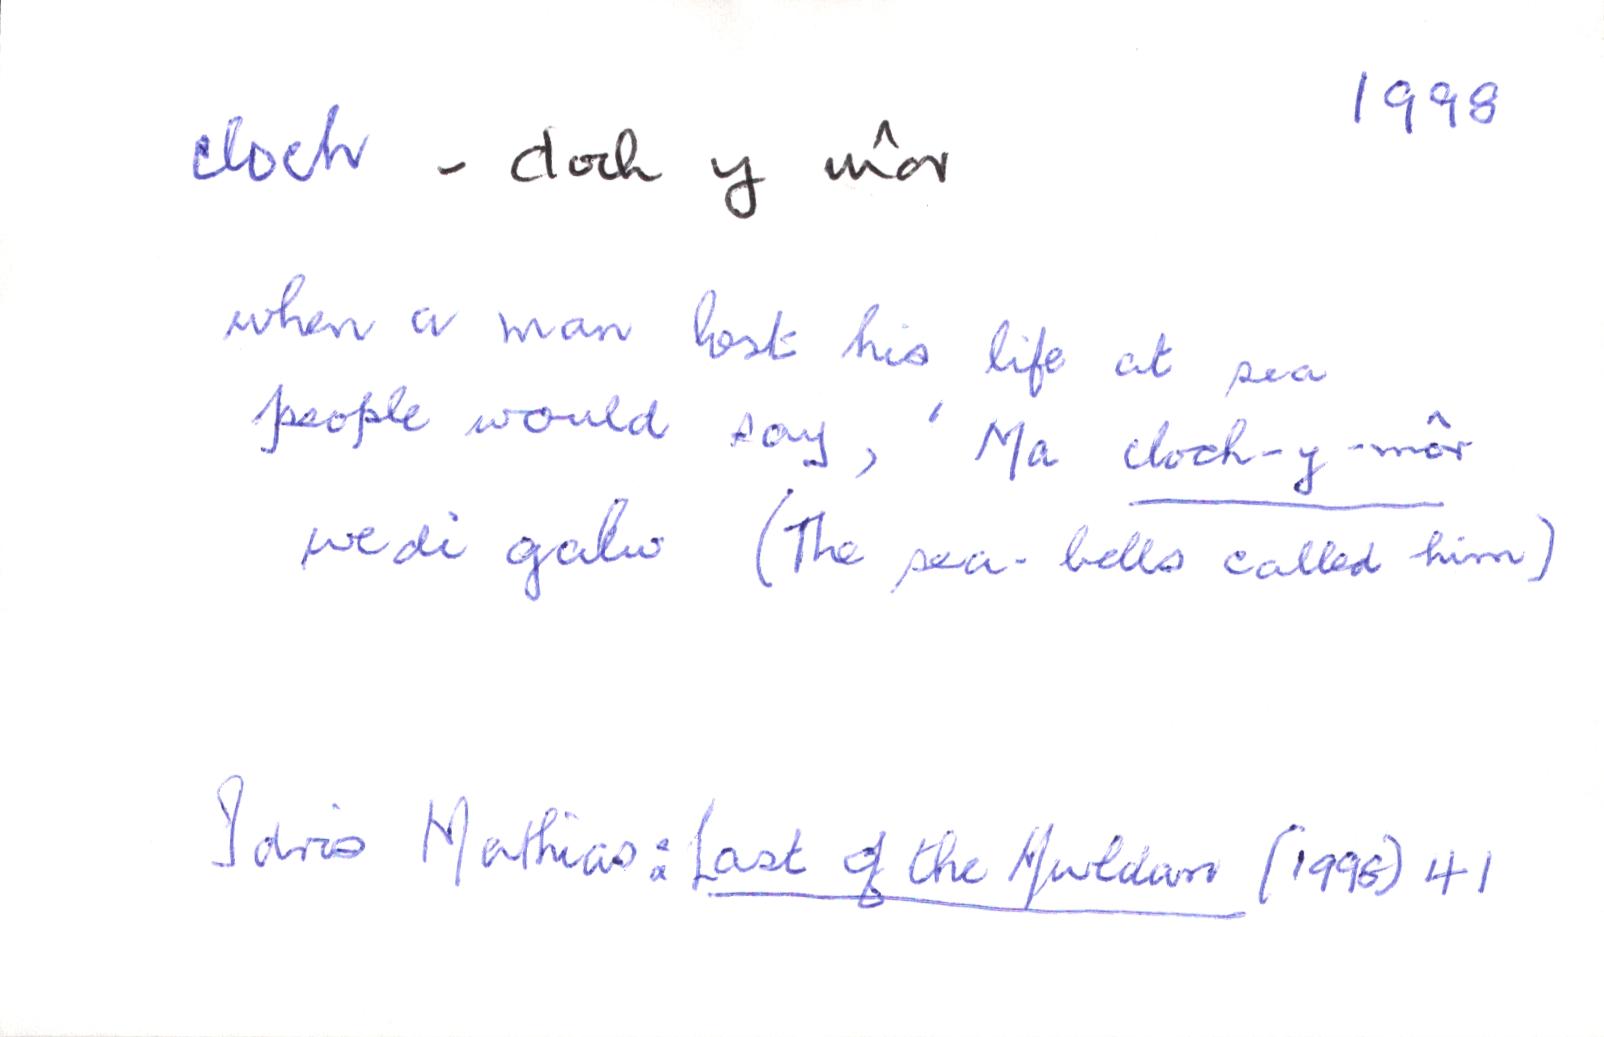 1998
cloch - cloch y môr
when a man lost his life at sea
people would say, 'Ma cloch-y-môr
wedi galw (The sea-bells called him)
Idris Mathias: Last of the Mwldan (1998) 41